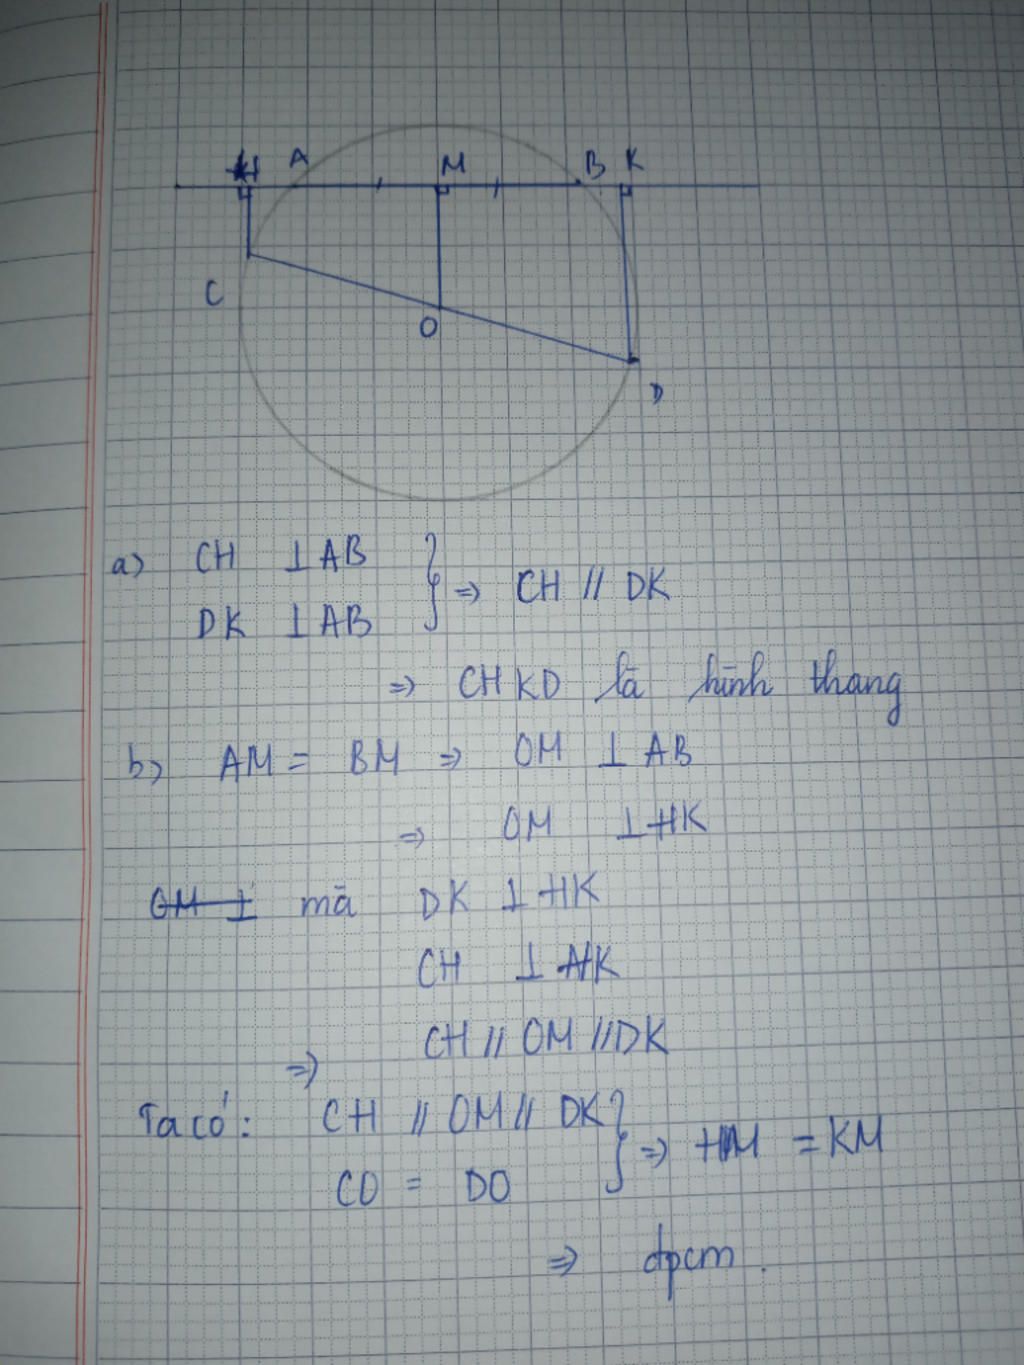 H A M B K
C
O
D
a) CH ⊥ AB
DK ⊥ AB } ⇒ CH // DK
⇒ CHKD là hình thang
b) AM = BM ⇒ OM ⊥ AB
⇒ OM ⊥ HK
OM ⊥ mà DK ⊥ HK
CH ⊥ HK
⇒ CH // OM // DK
Ta có: CH // OM // DK
CO = DO } ⇒ HM = KM
⇒ đpcm.